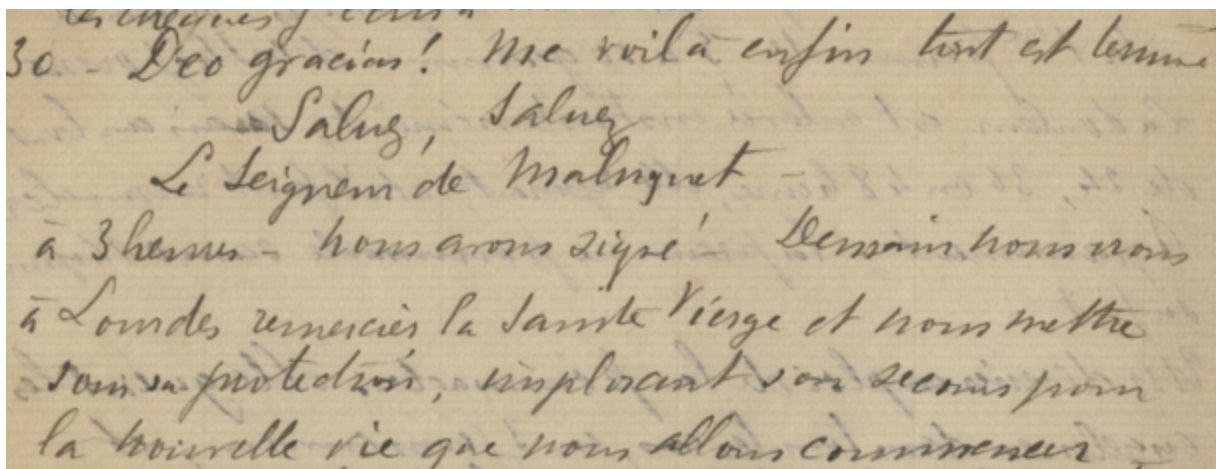 les chèques
30 - Deo gracias! Me voilà enfin tout est terminé
Saluez, Saluez
Le Seigneur de Maluquet -
à 3 heures - nous avons signé Demain nous irons
à Lourdes remercier la Sainte Vierge et nous mettre
sous sa protection, implorant son secours pour
la nouvelle vie que nous allons commencer -